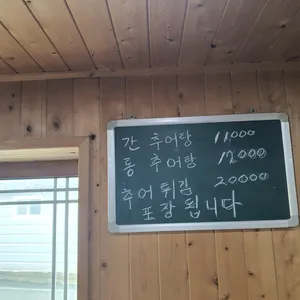 간 추어탕 11000
통 추어탕 12000
추어 튀김 20000
포장 됩니다